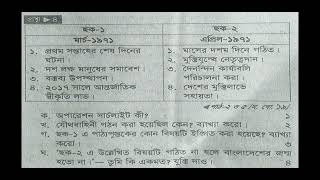 প্রশ্ন ▶ ৪
ছক-১
মার্চ-১৯৭১
ছক-২
এপ্রিল-১৯৭১
১. প্রথম সপ্তাহের শেষ দিনের ঘটনা।
২. দশ লক্ষ মানুষের সমাবেশ।
৩. বক্তব্য উপস্থাপন।
৪. ২০১৭ সালে আন্তর্জাতিক স্বীকৃতি লাভ।
১. মাসের দশম দিনে গঠিত।
২. মুক্তিযুদ্ধে নেতৃত্বদান।
৩. দৈনন্দিন কার্যাবলি পরিচালনা করা।
৪. দেশের মুক্তিলাভে সহায়তা।
ক. অপারেশন সার্চলাইট কী? ১
খ. যৌথবাহিনী গঠন করা হয়েছিল কেন? ব্যাখ্যা কর। ২
গ. ছক-১ এ পাঠ্যপুস্তকের কোন বিষয়টি ইঙ্গিত করা হয়েছে? ব্যাখ্যা করো। ৩
ঘ. 'ছক-২ এ উল্লেখিত বিষয়টি গঠিত না হলে বাংলাদেশের জন্ম হতো না।'— তুমি কি একমত? যুক্তি দাও। ৪